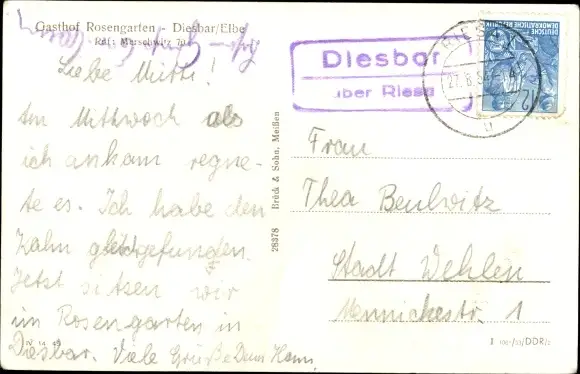 Gasthof Rosengarten - Diesbar/Elbe
Ruf: Merschwitz 70
Liebe Mutti!
Am Mittwoch als
ich ankam regne-
te es. Ich habe den
Kahn gleich gefunden.
Jetzt sitzen wir
im Rosengarten in
Diesbar. Viele Grüße Dein Hann.
28378 Brück & Sohn, Meißen
Diesbar
über Riesa
RIESA
27.8.5
DEUTSCHE
DEMOKRATISCHE REPUBLIK
12
Frau
Thea Beulwitz
Stadt Wehlen
Mennickestr. 1